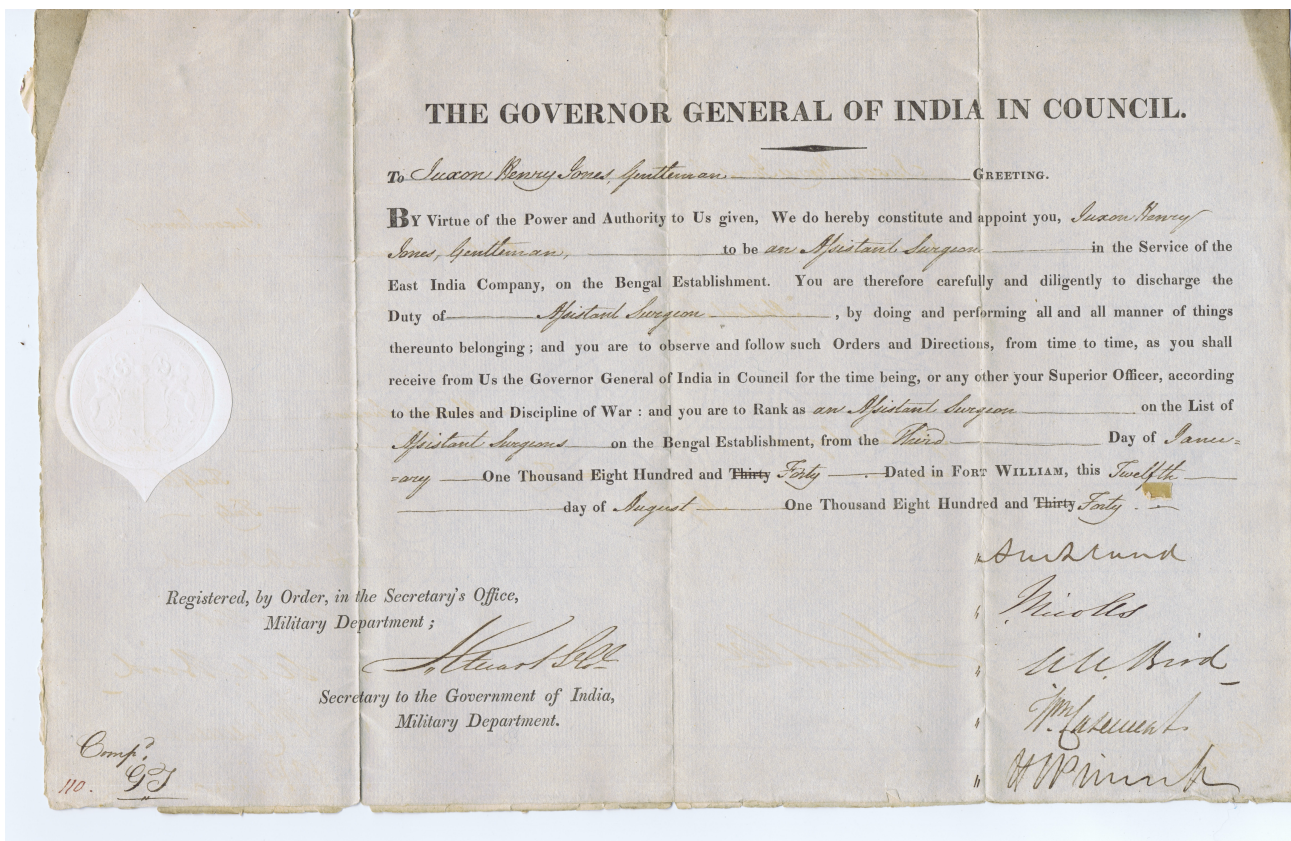 THE GOVERNOR GENERAL OF INDIA IN COUNCIL.
To Juxon Henry Jones, Gentleman GREETING.
BY Virtue of the Power and Authority to Us given, We do hereby constitute and appoint you, Juxon Henry
Jones, Gentleman, to be an Assistant Surgeon in the Service of the
East India Company, on the Bengal Establishment. You are therefore carefully and diligently to discharge the
Duty of Assistant Surgeon, by doing and performing all and all manner of things
thereunto belonging; and you are to observe and follow such Orders and Directions, from time to time, as you shall
receive from Us the Governor General of India in Council for the time being, or any other your Superior Officer, according
to the Rules and Discipline of War: and you are to Rank as an Assistant Surgeon on the List of
Assistant Surgeons on the Bengal Establishment, from the Third Day of Janu=
=ary One Thousand Eight Hundred and Thirty Forty. Dated in FORT WILLIAM, this Twelfth
day of August One Thousand Eight Hundred and Thirty Forty.
" Auckland
" J. Nicolls
" W. W. Bird
" Wm Casement
"
Registered, by Order, in the Secretary's Office,
Military Department;
J. Stuart Lt Cl
Secretary to the Government of India,
Military Department.
Compd.
110. GT